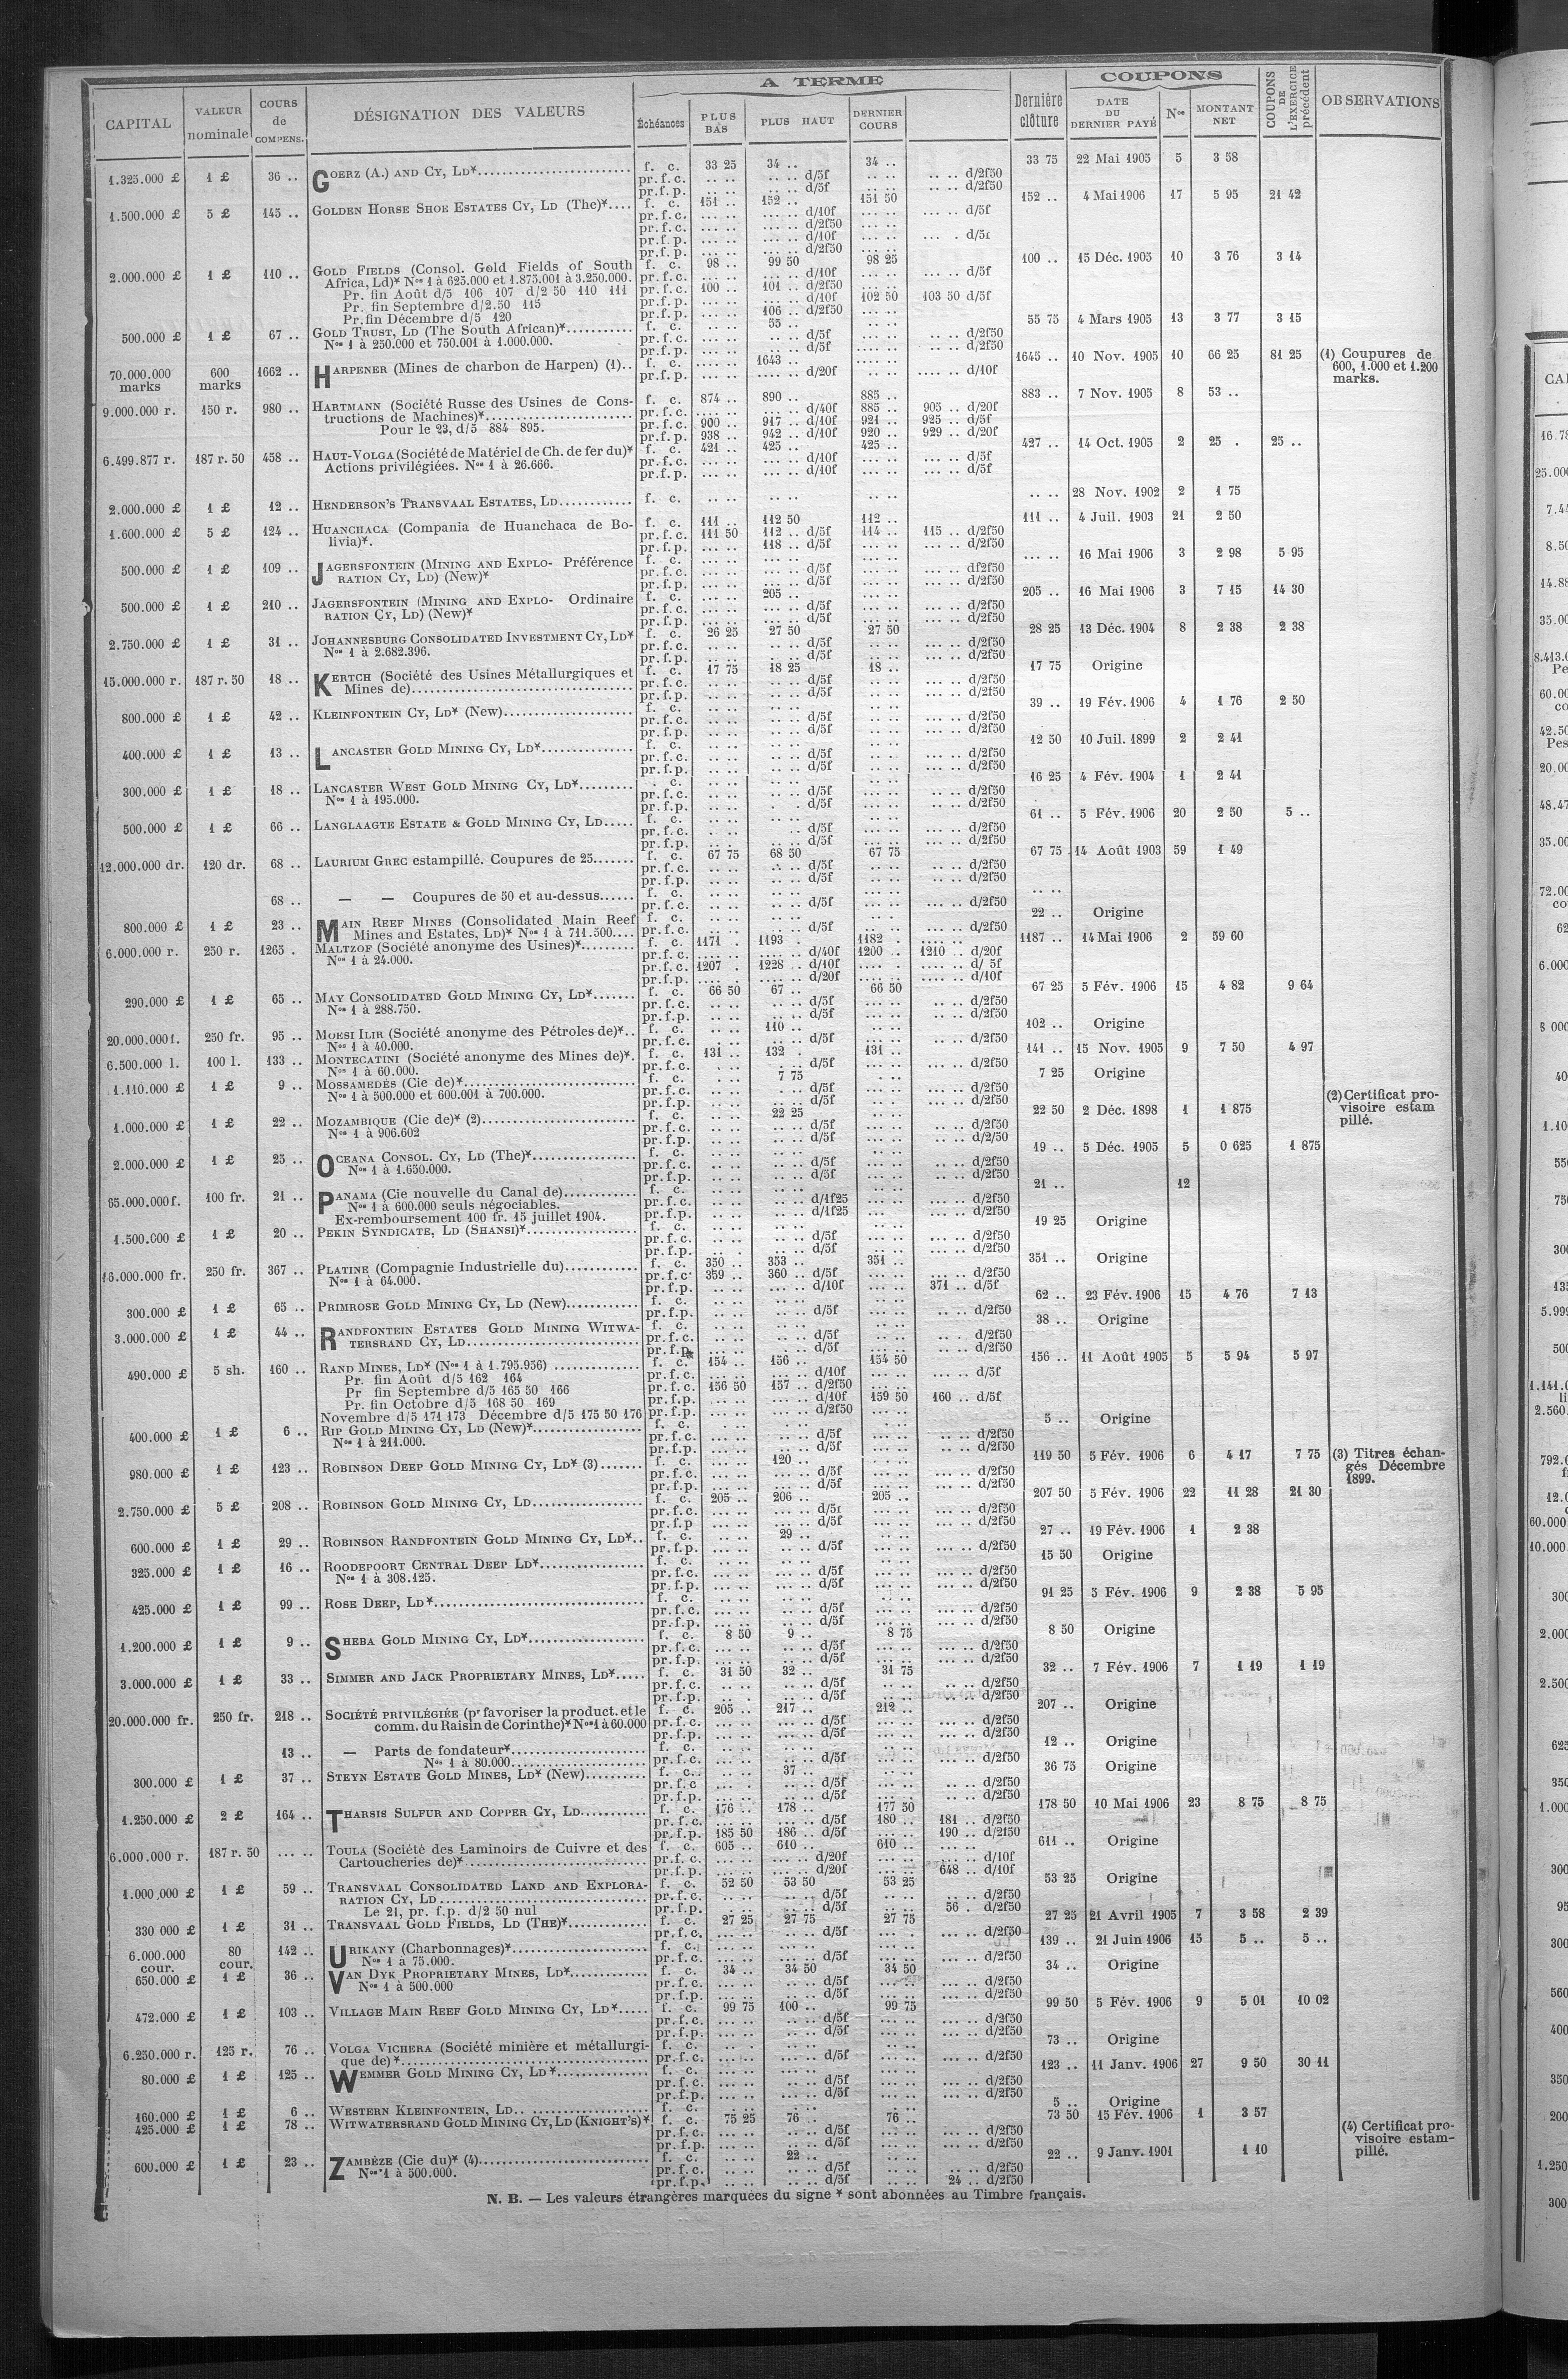 A TERME
COUPONS
CAPITAL
VALEUR nominale
COURS de COMPENS.
DÉSIGNATION DES VALEURS
Échéances
PLUS BAS
PLUS HAUT
DERNIER COURS
Dernière clôture
DATE DU DERNIER PAYÉ
Nos
MONTANT NET
COUPONS DE L'EXERCICE précédent
OBSERVATIONS
1.325.000 £ 1 £ 36 .. GOERZ (A.) AND CY, LD* f. c. 33 25 34 .. 34 .. 33 75 22 Mai 1905 5 3 58
pr. f. c. .. .. .. .. d/5f .. .. .. .. d/2f50
pr. f. p. .. .. .. .. d/5f .. .. .. .. d/2f50
1.500.000 £ 5 £ 145 .. GOLDEN HORSE SHOE ESTATES CY, LD (The)* f. c. 151 .. 152 .. 151 50 152 .. 4 Mai 1906 17 5 95 21 42
pr. f. c. ... .. ... .. d/10f ... .. ... .. d/5f
pr. f. c. ... .. ... .. d/2f50 ... ..
pr. f. p. ... .. ... .. d/10f ... ..
pr. f. p. ... .. ... .. d/2f50 ... ..
2.000.000 £ 1 £ 110 .. GOLD FIELDS (Consol. Gold Fields of South f. c. 98 .. 99 50 98 25 100 .. 15 Déc. 1905 10 3 76 3 14
Africa, Ld)* Nos 1 à 625.000 et 1.875.001 à 3.250.000. pr. f. c. ... .. ... .. d/10f ... .. ... .. d/5f
Pr. fin Août d/5 106 107 d/2 50 110 111 pr. f. c. 100 .. 101 .. d/2f50 ... ..
Pr. fin Septembre d/2.50 115 pr. f. p. ... .. ... .. d/10f 102 50 103 50 d/5f
Pr. fin Décembre d/5 120 pr. f. p. ... .. 106 .. d/2f50 ... ..
500.000 £ 1 £ 67 .. GOLD TRUST, LD (The South African)* f. c. .. .. 55 .. .. .. 55 75 4 Mars 1905 13 3 77 3 15
Nos 1 à 250.000 et 750.001 à 1.000.000. pr. f. c. .. .. .. .. d/5f .. .. .. .. d/2f50
pr. f. p. .. .. .. .. d/5f .. .. .. .. d/2f50
70.000.000 marks 600 marks 1662 .. HARPENER (Mines de charbon de Harpen) (1).. f. c. .... .. 1643 .. .... .. 1645 .. 10 Nov. 1905 10 66 25 81 25 (1) Coupures de 600, 1.000 et 1.200 marks.
pr. f. p. .... .. .... .. d/20f .... .. .... .. d/10f
9.000.000 r. 150 r. 980 .. HARTMANN (Société Russe des Usines de Cons- f. c. 874 .. 890 .. 885 .. 883 .. 7 Nov. 1905 8 53 ..
tructions de Machines)* pr. f. c. ... .. ... .. d/40f 885 .. 905 .. d/20f
Pour le 23, d/5 884 895. pr. f. c. 900 .. 917 .. d/10f 921 .. 925 .. d/5f
pr. f. p. 938 .. 942 .. d/10f 920 .. 929 .. d/20f
6.499.877 r. 187 r. 50 458 .. HAUT-VOLGA (Société de Matériel de Ch. de fer du)* f. c. 421 .. 425 .. 425 .. 427 .. 14 Oct. 1905 2 25 . 25 ..
Actions privilégiées. Nos 1 à 26.666. pr. f. c. ... .. ... .. d/10f ... .. ... .. d/5f
pr. f. p. ... .. ... .. d/10f ... .. ... .. d/5f
2.000.000 £ 1 £ 12 .. HENDERSON'S TRANSVAAL ESTATES, LD f. c. .. .. .. .. .. .. .. .. 28 Nov. 1902 2 1 75
1.600.000 £ 5 £ 124 .. HUANCHACA (Compania de Huanchaca de Bo- f. c. 111 .. 112 50 112 .. 111 .. 4 Juil. 1903 21 2 50
livia)*. pr. f. c. 111 50 112 .. d/5f 114 .. 115 .. d/2f50
pr. f. p. ... .. 118 .. d/5f ... .. ... .. d/2f50
500.000 £ 1 £ 109 .. JAGERSFONTEIN (MINING AND EXPLO- Préférence f. c. ... .. ... .. ... .. ... .. 16 Mai 1906 3 2 98 5 95
RATION CY, LD) (New)* pr. f. c. ... .. ... .. d/5f ... .. ... .. df2f50
pr. f. p. ... .. ... .. d/5f ... .. ... .. d/2f50
500.000 £ 1 £ 210 .. JAGERSFONTEIN (MINING AND EXPLO- Ordinaire f. c. ... .. 205 .. ... .. 205 .. 16 Mai 1906 3 7 15 14 30
RATION CY, LD) (New)* pr. f. c. ... .. ... .. d/5f ... .. ... .. d/2f50
pr. f. p. ... .. ... .. d/5f ... .. ... .. d/2f50
2.750.000 £ 1 £ 31 .. JOHANNESBURG CONSOLIDATED INVESTMENT CY, LD* f. c. 26 25 27 50 27 50 28 25 13 Déc. 1904 8 2 38 2 38
Nos 1 à 2.682.396. pr. f. c. .. .. .. .. d/5f .. .. ... .. d/2f50
pr. f. p. .. .. .. .. d/5f .. .. ... .. d/2f50
15.000.000 r. 187 r. 50 18 .. KERTCH (Société des Usines Métallurgiques et f. c. 17 75 18 25 18 .. 17 75 Origine
Mines de) pr. f. c. .. .. .. .. d/5f .. .. ... .. d/2f50
pr. f. p. .. .. .. .. d/5f .. .. ... .. d/2f50
800.000 £ 1 £ 42 .. KLEINFONTEIN CY, LD* (New) f. c. .. .. .. .. .. .. 39 .. 19 Fév. 1906 4 1 76 2 50
pr. f. c. .. .. .. .. d/5f .. .. ... .. d/2f50
pr. f. p. .. .. .. .. d/5f .. .. ... .. d/2f50
400.000 £ 1 £ 13 .. LANCASTER GOLD MINING CY, LD* f. c. .. .. .. .. .. .. 12 50 10 Juil. 1899 2 2 41
pr. f. c. .. .. .. .. d/5f .. .. ... .. d/2f50
pr. f. p. .. .. .. .. d/5f .. .. ... .. d/2f50
300.000 £ 1 £ 18 .. LANCASTER WEST GOLD MINING CY, LD* . c. .. .. .. .. .. .. 16 25 4 Fév. 1904 1 2 41
Nos 1 à 195.000. pr. f. c. .. .. .. .. d/5f .. .. ... .. d/2f50
pr. f. p. .. .. . . d/5f .. .. ... .. d/2f50
500.000 £ 1 £ 66 .. LANGLAAGTE ESTATE & GOLD MINING CY, LD f. c. .. .. .. .. .. .. 61 .. 5 Fév. 1906 20 2 50 5 ..
pr. f. c. . .. .. d/5f .. .. ... .. d/2f50
pr. f. p. .. .. .. .. d/5f .. .. ... .. d/2f50
12.000.000 dr. 120 dr. 68 .. LAURIUM GREC estampillé. Coupures de 25 f. c. 67 75 68 50 67 75 67 75 14 Août 1903 59 1 49
pr. f. c. .. .. .. .. d/5f .. .. .. .. d/2f50
pr. f. p. .. .. .. .. d/5f .. .. .. .. d/2f50
68 .. — — Coupures de 50 et au-dessus f. c. .. .. .. .. .. .. .. ..
pr. f. c. .. .. .. .. d/5f .. .. ... .. d/2f50
800.000 £ 1 £ 23 .. MAIN REEF MINES (Consolidated Main Reef f. c. .. .. .. .. .. . 22 .. Origine
Mines and Estates, LD)* Nos 1 à 711.500.... pr. f. c. .. .. .. .. d/5f .. .. .. .. d/2f50
6.000.000 r. 250 r. 1265 . MALTZOF (Société anonyme des Usines)* f. c. 1171 . 1193 . 1182 .. 1187 .. 14 Mai 1906 2 59 60
Nos 1 à 24.000. pr. f. c. .... .. .... .. d/40f 1200 .. 1210 .. d/20f
pr. f. c. 1207 . 1228 .. d/10f .... . .... .. d/ 5f
pr. f. p. .... . .... .. d/20f .... .. .... .. d/10f
290.000 £ 1 £ 65 .. MAY CONSOLIDATED GOLD MINING CY, LD* f. c. 66 50 67 .. 66 50 67 25 5 Fév. 1906 15 4 82 9 64
Nos 1 à 288.750. pr. f. c. .. .. .. .. d/5f .. .. .. .. d/2f50
pr. f. p. .. .. .. .. d/5f .. .. .. .. d/2f50
20.000.000f. 250 fr. 95 .. MOESI ILIR (Société anonyme des Pétroles de)*.. f. c. .. .. 110 .. .. .. 102 .. Origine
Nos 1 à 40.000. pr. f. c. . .. .. .. d/5f .. .. .. .. d/2f50
6.500.000 l. 100 l. 133 .. MONTECATINI (Société anonyme des Mines de)*. f. c. 131 .. 132 . 131 .. 141 .. 15 Nov. 1905 9 7 50 4 97
Nos 1 à 60.000. pr. f. c. . .. .. .. d/5f .. .. ... .. d/2f50
1.110.000 £ 1 £ 9 .. MOSSAMEDÈS (Cie de)* f. c. . .. 7 75 . .. 7 25 Origine
Nos 1 à 500.000 et 600.001 à 700.000. pr. f. c. . .. .. .. d/5f .. .. ... .. d/2f50
pr. f. p. .. .. .. .. d/5f .. . .. .. d/2f50
1.000.000 £ 1 £ 22 .. MOZAMBIQUE (Cie de)* (2) f. c. .. .. 22 25 .. .. 22 50 2 Déc. 1898 1 1 875 (2) Certificat pro- visoire estam pillé.
Nos 1 à 906.602 pr. f. c. .. .. .. .. d/5f .. .. ... .. d/2f50
pr. f. p. .. .. .. .. d/5f .. .. .. .. d/2/50
2.000.000 £ 1 £ 25 .. OCEANA CONSOL. CY, LD (The)* f. c. .. .. .. .. .. .. 19 .. 5 Déc. 1905 5 0 625 1 875
Nos 1 à 1.650.000. pr. f. c. .. .. .. .. d/5f ... .. .. .. d/2f50
pr. f. p. .. .. .. .. d/5f ... .. ... .. d/2f50
65.000.000f. 100 fr. 21 .. PANAMA (Cie nouvelle du Canal de) f. c. .. .. .. .. .. .. 21 .. 12
Nos 1 à 600.000 seuls négociables. pr. f. c. .. .. .. .. d/1f25 ... .. ... .. d/2f50
Ex-remboursement 100 fr. 15 juillet 1904. pr. f. p. .. .. .. .. d/1f25 ... .. ... .. d/2f50
1.500.000 £ 1 £ 20 .. PEKIN SYNDICATE, LD (SHANSI)* f. c. .. .. .. .. .. .. 19 25 Origine
pr. f. c. .. .. .. .. d/5f ... .. ... .. d/2f50
pr. f. p. .. . .. .. d/5f ... .. ... .. d/2f50
16.000.000 fr. 250 fr. 367 .. PLATINE (Compagnie Industrielle du) f. c. 350 .. 353 .. 351 .. 351 .. Origine
Nos 1 à 64.000. pr. f. c. 359 .. 360 .. d/5f ... .. ... .. d/2f50
pr. f. p. ... .. ... .. d/10f ... .. 371 .. d/5f
300.000 £ 1 £ 65 .. PRIMROSE GOLD MINING CY, LD (New) f. c. .. .. .. .. .. .. 62 .. 23 Fév. 1906 15 4 76 7 13
pr. f. p. .. .. .. .. d/5f ... .. .. .. d/2f50
3.000.000 £ 1 £ 44 .. RANDFONTEIN ESTATES GOLD MINING WITWA- f. c. .. .. .. .. .. .. 38 .. Origine
TERSRAND CY, LD pr. f. c. .. .. .. .. d/5f ... .. .. . d/2f50
pr. f. p. .. .. .. .. d/5f ... .. .. .. d/2f50
490.000 £ 5 sh. 160 .. RAND MINES, LD* (Nos 1 à 1.795.956) f. c. 154 .. 156 .. 154 50 156 .. 11 Août 1905 5 5 94 5 97
Pr. fin Août d/5 162 164 pr. f. c. ... .. ... .. d/10f ... .. ... .. d/5f
Pr fin Septembre d/5 165 50 166 pr. f. c. 156 50 157 .. d/2f50 ... ..
Pr. fin Octobre d/5 168 50 169 pr. f. p. ... .. ... .. d/10f 159 50 160 .. d/5f
Novembre d/5 171 173 Décembre d/5 175 50 176 pr. f. p. ... .. ... .. d/2f50 ... ..
400.000 £ 1 £ 6 .. RIP GOLD MINING CY, LD (New)* f. c. .. .. .. .. .. .. 5 .. Origine
Nos 1 à 211.000. pr. f. c. .. .. .. .. d/5f ... .. .. .. d/2f50
pr. f. p. .. .. .. .. d/5f ... .. .. .. d/2f50
980.000 £ 1 £ 123 .. ROBINSON DEEP GOLD MINING CY, LD* (3) f. c. ... .. 120 .. ... .. 119 50 5 Fév. 1906 6 4 17 7 75 (3) Titres échan- gés Décembre 1899.
pr. f. c. ... .. ... .. d/5f ... .. ... .. d/2f50
pr. f. p. ... .. ... .. d/5f ... .. ... .. d/2f50
2.750.000 £ 5 £ 208 .. ROBINSON GOLD MINING CY, LD f. c. 205 .. 206 .. 205 .. 207 50 5 Fév. 1906 22 11 28 21 30
pr. f. c. ... .. ... .. d/5f ... .. ... .. d/2f50
pr. f. p ... .. ... .. d/5f ... .. ... .. d/2f50
600.000 £ 1 £ 29 .. ROBINSON RANDFONTEIN GOLD MINING CY, LD*.. f. c. .. .. 29 .. .. .. 27 .. 19 Fév. 1906 1 2 38
pr. f. p. ... .. ... .. d/5f ... .. ... .. d/2f50
325.000 £ 1 £ 16 .. ROODEPOORT CENTRAL DEEP LD* f. c. ... .. ... .. ... .. 15 50 Origine
Nos 1 à 308.125. pr. f. c. ... .. ... .. d/5f ... .. ... .. d/2f50
pr. f. p. ... .. ... .. d/5f ... .. ... .. d/2f50
425.000 £ 1 £ 99 .. ROSE DEEP, LD* f. c. ... .. ... .. ... .. 91 25 5 Fév. 1906 9 2 38 5 95
pr. f. c. ... .. ... .. d/5f ... .. ... .. d/2f50
pr. f. p. ... .. ... .. d/5f ... .. ... .. d/2f50
1.200.000 £ 1 £ 9 .. SHEBA GOLD MINING CY, LD* f. c. 8 50 9 .. 8 75 8 50 Origine
pr. f. c. ... .. ... .. d/5f ... .. ... .. d/2f50
pr. f. p. ... .. ... .. d/5f ... .. ... .. d/2f50
3.000.000 £ 1 £ 33 .. SIMMER AND JACK PROPRIETARY MINES, LD* f. c. 31 50 32 .. 31 75 32 .. 7 Fév. 1906 7 1 19 1 19
pr. f. c. .. .. .. .. d/5f ... .. ... .. d/2f50
pr. f. p. .. . .. .. d/5f ... .. ... .. d/2f50
20.000.000 fr. 250 fr. 218 .. SOCIÉTÉ PRIVILÉGIÉE (pr favoriser la product. et le f. c. 205 .. 217 .. 212 .. 207 .. Origine
comm. du Raisin de Corinthe)* Nos 1 à 60.000 pr. f. c. ... .. ... .. d/5f ... .. ... .. d/2f50
pr. f. p. ... .. ... .. d/5f ... .. ... .. d/2f50
13 .. — Parts de fondateur* f. c. .. .. .. .. .. .. 12 .. Origine
Nos 1 à 80.000 pr. f. c. ... .. ... .. d/5f ... .. ... .. d/2f50
300.000 £ 1 £ 37 .. STEYN ESTATE GOLD MINES, LD* (New) f. c. .. .. 37 .. .. .. 36 75 Origine
pr. f. c ... . .. .. d/5f ... .. .. .. d/2f50
pr. f. p. .. .. .. .. d/5f ... .. .. .. d/2f50
1.250.000 £ 2 £ 164 .. THARSIS SULFUR AND COPPER CY, LD f. c. 176 .. 178 .. 177 50 178 50 10 Mai 1906 23 8 75 8 75
pr. f. c. ... .. ... .. d/5f 180 .. 181 .. d/2f50
pr. f. p. 185 50 186 .. d/5f ... .. 190 .. d/2f50
6.000.000 r. 187 r. 50 ... .. TOULA (Société des Laminoirs de Cuivre et des f. c. 605 .. 610 .. 610 .. 611 .. Origine
Cartoucheries de)* pr. f. c. ... .. ... .. d/20f ... .. ... .. d/10f
pr. f. p. ... .. ... .. d/20f ... .. 648 .. d/10f
1.000,000 £ 1 £ 59 .. TRANSVAAL CONSOLIDATED LAND AND EXPLORA- f. c. 52 50 53 50 53 25 53 25 Origine
RATION CY, LD pr. f. c. .. .. .. .. d/5f .. .. .. .. d/2f50
Le 21, pr. f.p. d/2 50 nul pr. f. p. .. .. .. .. d/5f .. .. 56 . d/2f50
330 000 £ 1 £ 31 .. TRANSVAAL GOLD FIELDS, LD (THE)* f. c. 27 25 27 75 27 75 27 25 21 Avril 1905 7 3 58 2 39
pr. f. c. ... .. ... .. d/5f ... . ... .. d/2f50
6.000.000 cour. 80 cour. 142 .. URIKANY (Charbonnages)* f. c. ... .. ... .. ... .. 139 .. 21 Juin 1906 15 5 .. 5 ..
Nos 1 à 75.000. pr. f. c. ... .. ... .. d/5f ... .. ... .. d/2f50
650.000 £ 1 £ 36 .. VAN DYK PROPRIETARY MINES, LD* f. c. 34 .. 34 50 34 50 34 .. Origine
Nos 1 à 500.000 pr. f. c. ... .. ... .. d/5f ... .. ... .. d/2f50
pr. f. p. ... .. ... .. d/5f ... .. ... .. d/2f50
472.000 £ 1 £ 103 .. VILLAGE MAIN REEF GOLD MINING CY, LD* f. c. 99 75 100 .. 99 75 99 50 5 Fév. 1906 9 5 01 10 02
pr. f. c. ... .. ... .. d/5f ... .. ... .. d/2f50
pr. f. p. ... .. ... .. d/5f ... .. ... .. d/2f50
6.250.000 r. 125 r. 76 .. VOLGA VICHERA (Société minière et métallurgi- f. c. .. . .. .. .. .. 73 .. Origine
que de)* pr. f. c. ... .. ... .. d/5f ... .. ... .. d/2f50
80.000 £ 1 £ 125 .. WEMMER GOLD MINING CY, LD* f. c. ... .. ... .. ... .. 123 .. 11 Janv. 1906 27 9 50 30 11
pr. f. c. ... .. ... .. d/5f ... .. ... .. d/2f50
pr. f. p. ... .. ... .. d/5f ... .. ... .. d/2f50
160.000 £ 1 £ 6 .. WESTERN KLEINFONTEIN, LD f. c. .. .. .. .. .. .. 5 .. Origine
425.000 £ 1 £ 78 .. WITWATERSRAND GOLD MINING CY, LD (KNIGHT'S)* f. c. 75 25 76 .. 76 .. 73 50 15 Fév. 1906 1 3 57
pr. f. c. ... .. ... .. d/5f ... .. ... .. d/2f50
pr. f. p. ... .. ... .. d/5f ... .. ... .. d/2f50
600.000 £ 1 £ 23 .. ZAMBÈZE (Cie du)* (4) f. c. .. .. 22 .. .. .. 22 .. 9 Janv. 1901 1 10 (4) Certificat pro- visoire estam- pillé.
Nos 1 à 500.000. pr. f. c. .. .. .. .. d/5f .. .. .. .. d/2f50
pr. f. p. .. .. .. .. d/5f .. .. 24 .. d/2f50
N. B. — Les valeurs étrangères marquées du signe * sont abonnées au Timbre français.